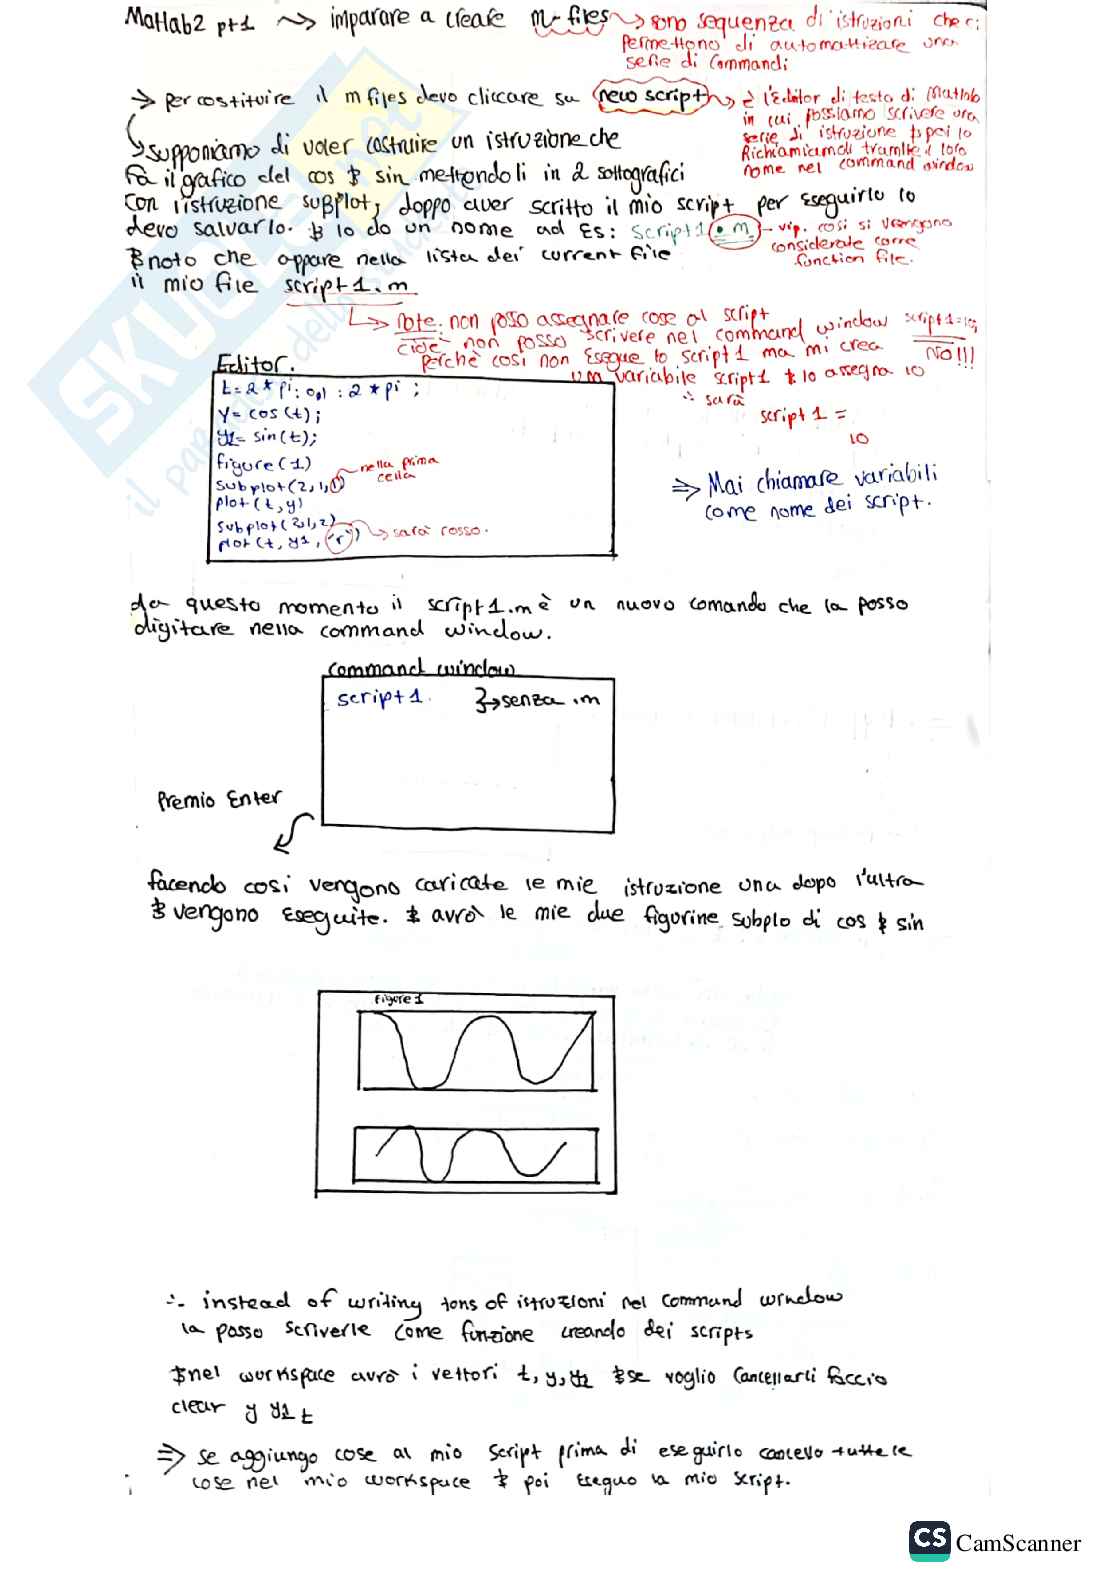 Matlab2 pt1 ~> imparare a creare m-files ~> sono sequenza di istruzioni che ci
permettono di automattizare una
serie di commandi
-> per costituire il m files devo cliccare su new script ~> è l'editor di testo di Matlab
in cui possiamo scrivere una
serie di istruzione & poi lo
Richiamiamoli tramite il loro
nome nel command window
↳ supponiamo di voler costruire un istruzione che
fa il grafico del cos & sin mettendoli in 2 sottografici
con l'istruzione subplot; doppo aver scritto il mio script per eseguirlo lo
devo salvarlo. & lo do un nome ad Es: script1.m -> vip. così si vengono
considerate come
function file.
& noto che appare nella lista dei current file
il mio file script1.m
↳ note. non posso assegnare cose al script
cioè non posso scrivere nel command window script1=10; NO!!!
Perchè così non Esegue lo script1 ma mi crea
una variabile script1 & lo assegna 10
∴ sarà
script1 =
10
Editor.
t=2*pi:0,1:2*pi;
y=cos(t);
y1=sin(t);
figure(1)
subplot(2,1,1) -> nella prima cella
plot(t,y)
subplot(2,1,2)
plot(t,y1,'r') -> sarà rosso.
=> Mai chiamare variabili
come nome dei script.
da questo momento il script1.m è un nuovo comando che la posso
digitare nella command window.
command window
script1. }-> senza .m
Premio Enter
facendo così vengono caricate le mie istruzione una dopo l'ultra
& vengono Eseguite. & avrò le mie due figurine subplo di cos & sin
figure 1
∴ instead of writing tons of istruzioni nel command window
la posso scriverle come funzione creando dei scripts
& nel workspace avrò i vettori t, y, y1 & se voglio cancellarli faccio
clear y y1 t
=> se aggiungo cose al mio script prima di eseguirlo cancello tutte le
cose nel mio workspace & poi Eseguo la mio script.
CS CamScanner
SKUOLA.net